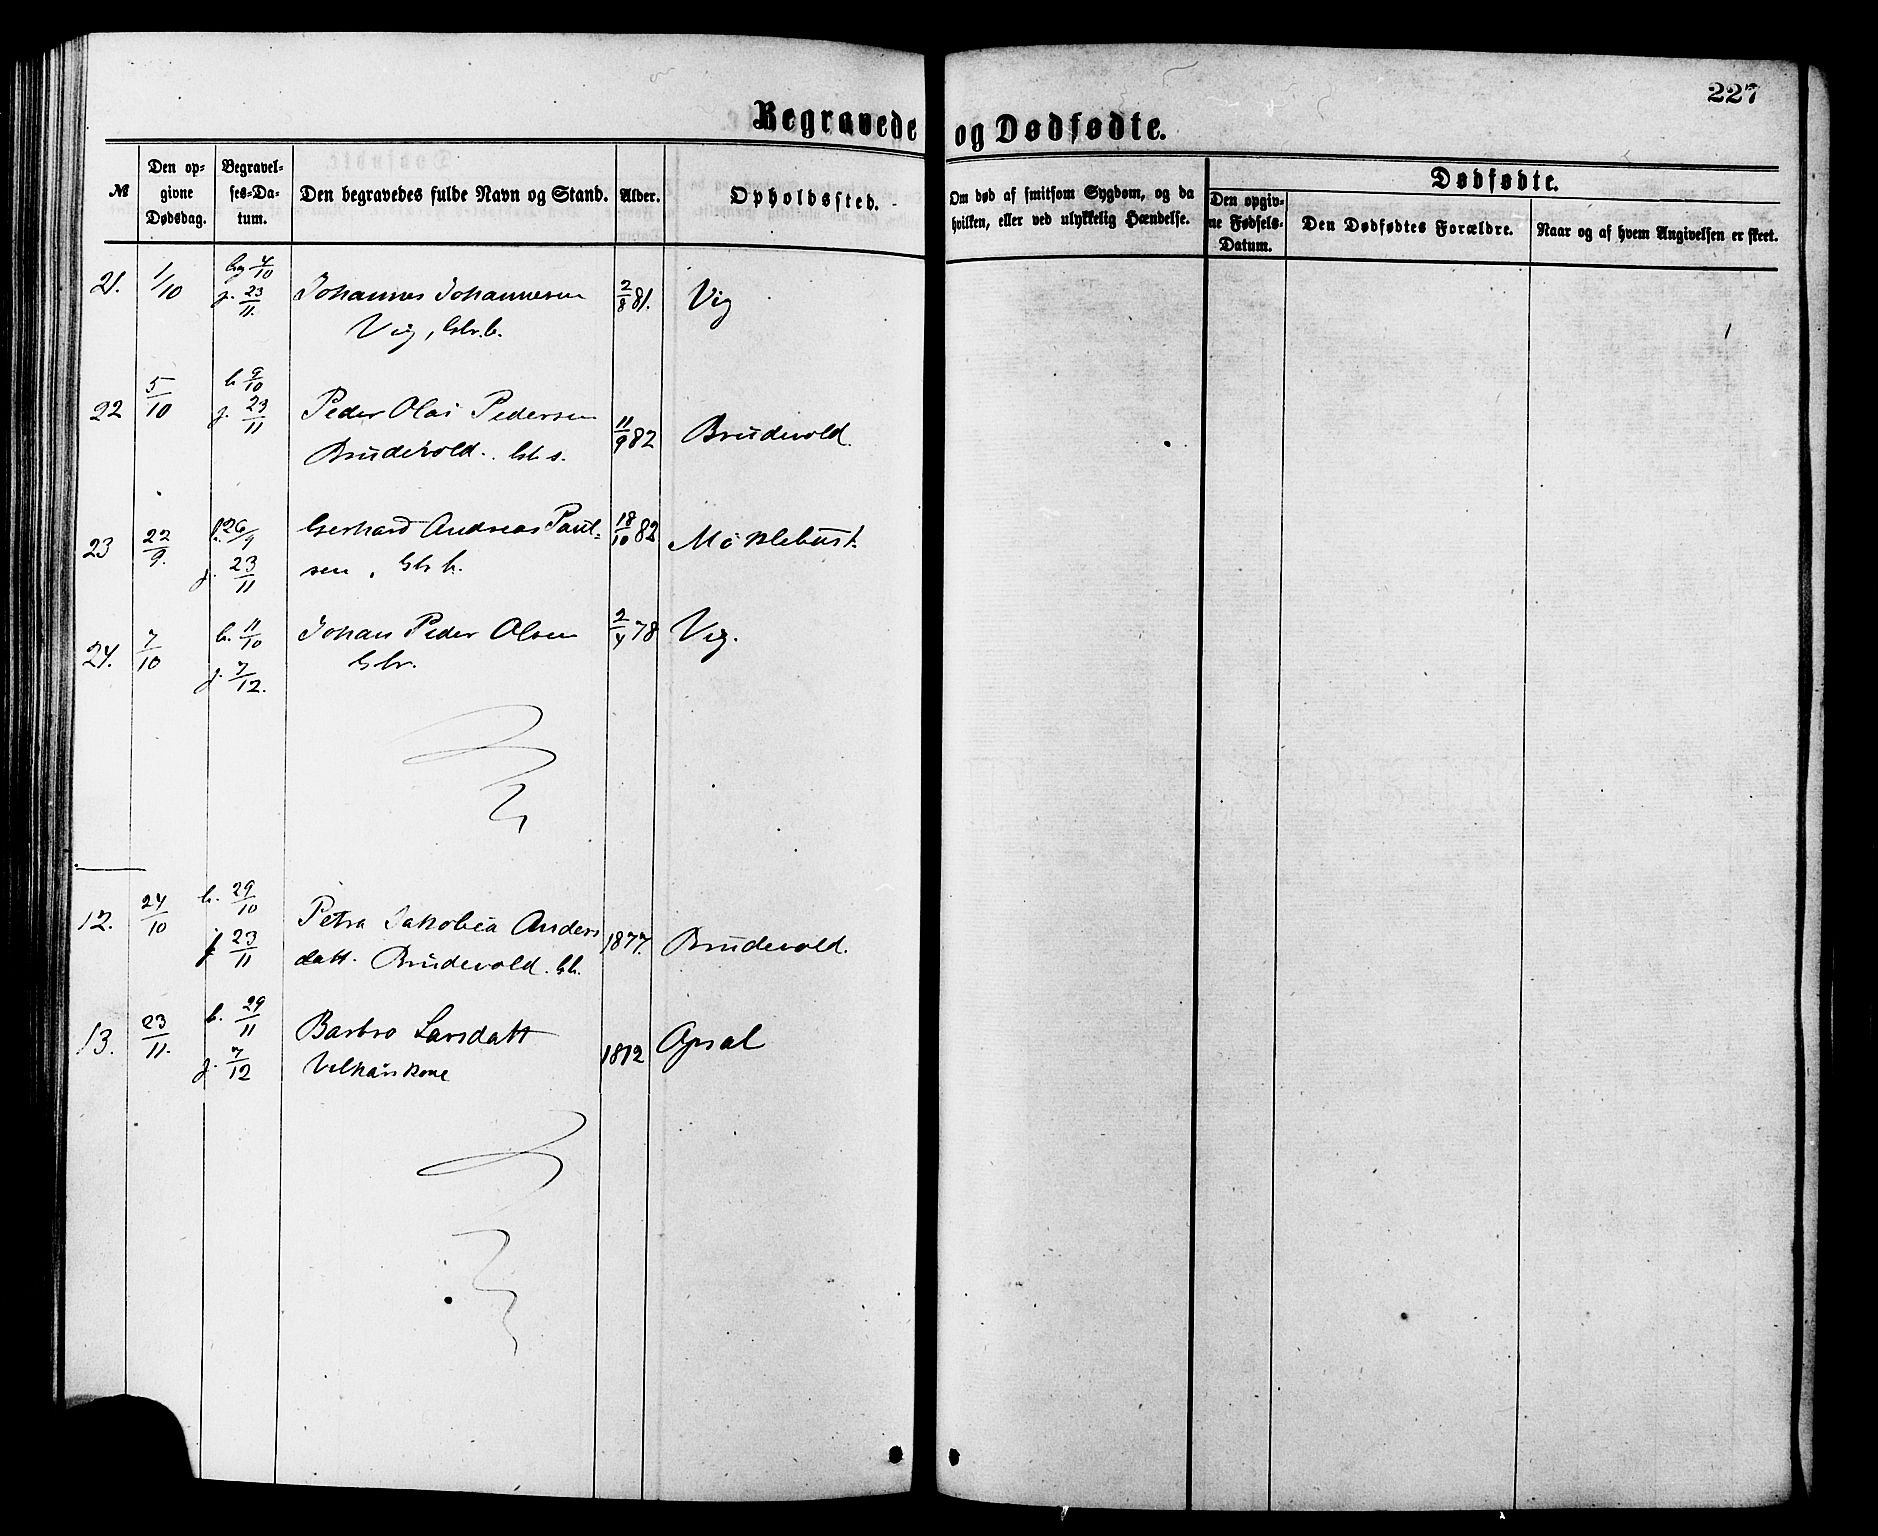 227
Begravede og Dødfødte.
№
Den op-
givne
Dødsdag.
Begravel-
ses-Da-
tum.
Den begravedes fulde Navn og Stand.
Alder.
Opholdssted.
Om død af smitsom Sygdom, og da
hvilken, eller ved ulykkelig Hændelse.
Dødfødte.
Den opgiv-
ne Fødsels-
Datum.
Den Dødfødtes Forældre.
Naar og af hvem Angivelsen er skeet.
21. 1/10 beg 4/10 Johannes Johannesen 2/8 81. Vig
j. 23/11. Vig, Gbr.b.
22 5/10 b 9/10 Peder Olai Pedersen 11/9 82 Brudevold.
j. 23/11 Brudevold. Gb. s.
23 22/9. 26/9 Gerhard Andreas Paul- 18/10 82 Möklebust.
j. 23/11 sen, Gbr b.
24. 7/10 b. 11/10 Johan Peder Olsen 2/4 78 Vig.
j. 7/12. Gbr.
12. 24/10 b. 29/10 Petra Jakobea Anders 1877. Brudevold.
j 23/11 datt. Brudevold. Gb.
13. 23/11. b. 29/11 Barbro Larsdatt 1812 Opsal
j. 7/12 Velkårskone